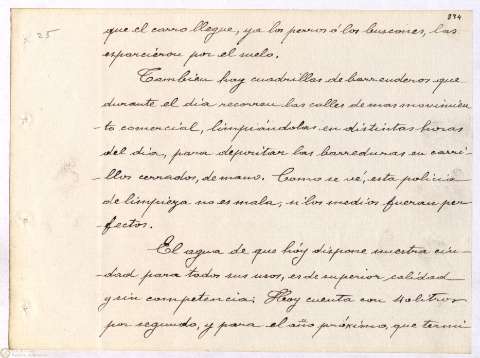 294
x 25
que el carro llegue, ya los perros ó los buscones, las
esparcieron por el suelo.
Tambien hay cuadrillas de barrenderos que
durante el dia recorren las calles de mas movimien-
-to comercial, limpiándolas en distintas horas
del dia, para depositar las barreduras en carri-
-llos cerrados, de mano. Como se vé, esta policia
de limpieza no es mala; si los medios fueran per-
-fectos.
El agua de que hoy dispone nuestra ciu-
-dad para todos sus usos, es de superior calidad
y sin competencia; Hoy cuenta con 40 litros
por segundo, y para el año próximo, que termi-